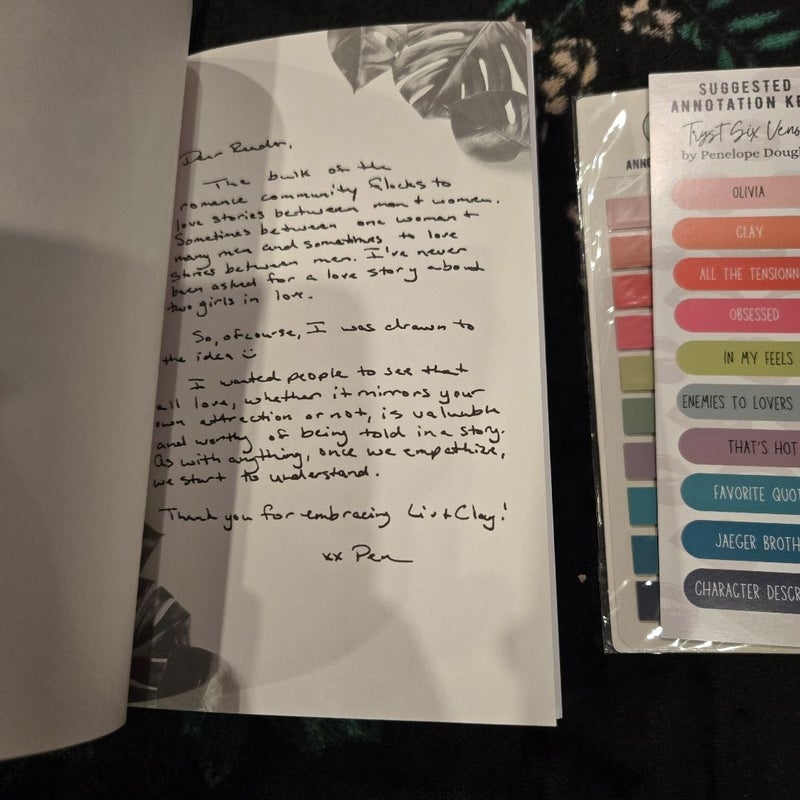 Dear Reader,
The bulk of the
romance community flocks to
love stories between men + women.
Sometimes between one woman +
many men and sometimes to love
stories between men. I've never
been asked for a love story about
two girls in love.
So, of course, I was drawn to
the idea ☺
I wanted people to see that
all love, whether it mirrors your
own attraction or not, is valuable
and worthy of being told in a story.
As with anything, once we empathize,
we start to understand.
Thank you for embracing Liv + Clay!
xx Pen
ANNO
SUGGESTED
ANNOTATION KE
Tryst Six Veno
by Penelope Dougl
OLIVIA
CLAY
ALL THE TENSIONN
OBSESSED
IN MY FEELS
ENEMIES TO LOVERS
THAT'S HOT
FAVORITE QUOT
JAEGER BROTH
CHARACTER DESCR